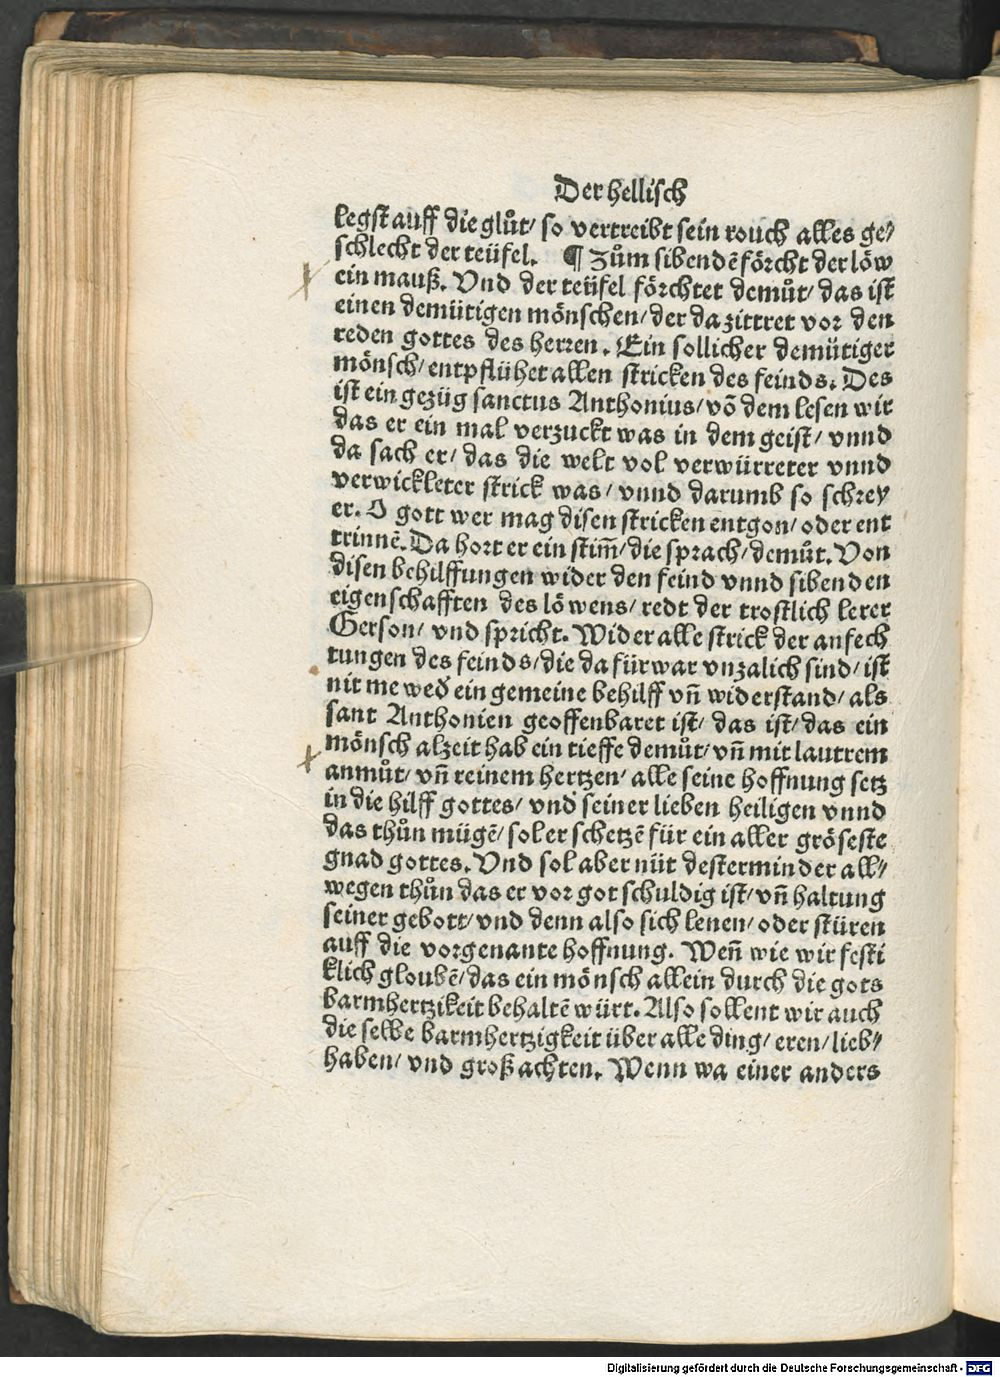 Der hellisch
legst auff die glůt/ so vertreibt sein rouch alles ge⸗
schlecht der teüfel. ¶ Zům sibendē förcht der löw
ein mauß. Vnd der teüfel förchtet demůt/ das ist
einen demütigen mönschen/ der da zittret vor den
reden gottes des herren. Ein sollicher demütiger
mönsch/ entpflühet allen stricken des feinds. Des
ist ein gezüg sanctus Anthonius/ vō dem lesen wir
das er ein mal verzuckt was in dem geist/ vnnd
da sach er/ das die welt vol verwürreter vnnd
verwickleter strick was/ vnnd darumb so schrey
er. O gott wer mag disen stricken entgon/ oder ent
trinnē. Da hort er ein stim̄/ die sprach/ demůt. Von
disen behilffungen wider den feind vnnd siben den
eigenschafften des löwens/ redt der trostlich lerer
Gerson/ vnd spricht. Wider alle strick der anfech
tungen des feinds/ die da fürwar vnzalich sind/ ist
nit me weď ein gemeine behilff vn̄ widerstand/ als
sant Anthonien geoffenbaret ist/ das ist/ das ein
mönsch alzeit hab ein tieffe demůt/ vn̄ mit lautrem
anmůt/ vn̄ reinem hertzen/ alle seine hoffnung setz
in die hilff gottes/ vnd seiner lieben heiligen vnnd
das thůn mügē/ sol er schetzē für ein aller gröseste
gnad gottes. Vnd sol aber nüt desterminder all⸗
wegen thůn das er vor got schuldig ist/ vn̄ haltung
seiner gebott/ vnd denn also sich lenen/ oder stüren
auff die vorgenante hoffnung. Wen̄ wie wir festi
klich gloubē/ das ein mönsch allein durch die gots
barmhertzikeit behaltē würt. Also sollent wir auch
die selbe barmhertzigkeit über alle ding/ eren/ lieb⸗
haben/ vnd groß achten. Wenn wa einer anders
Digitalisierung gefördert durch die Deutsche Forschungsgemeinschaft - DFG